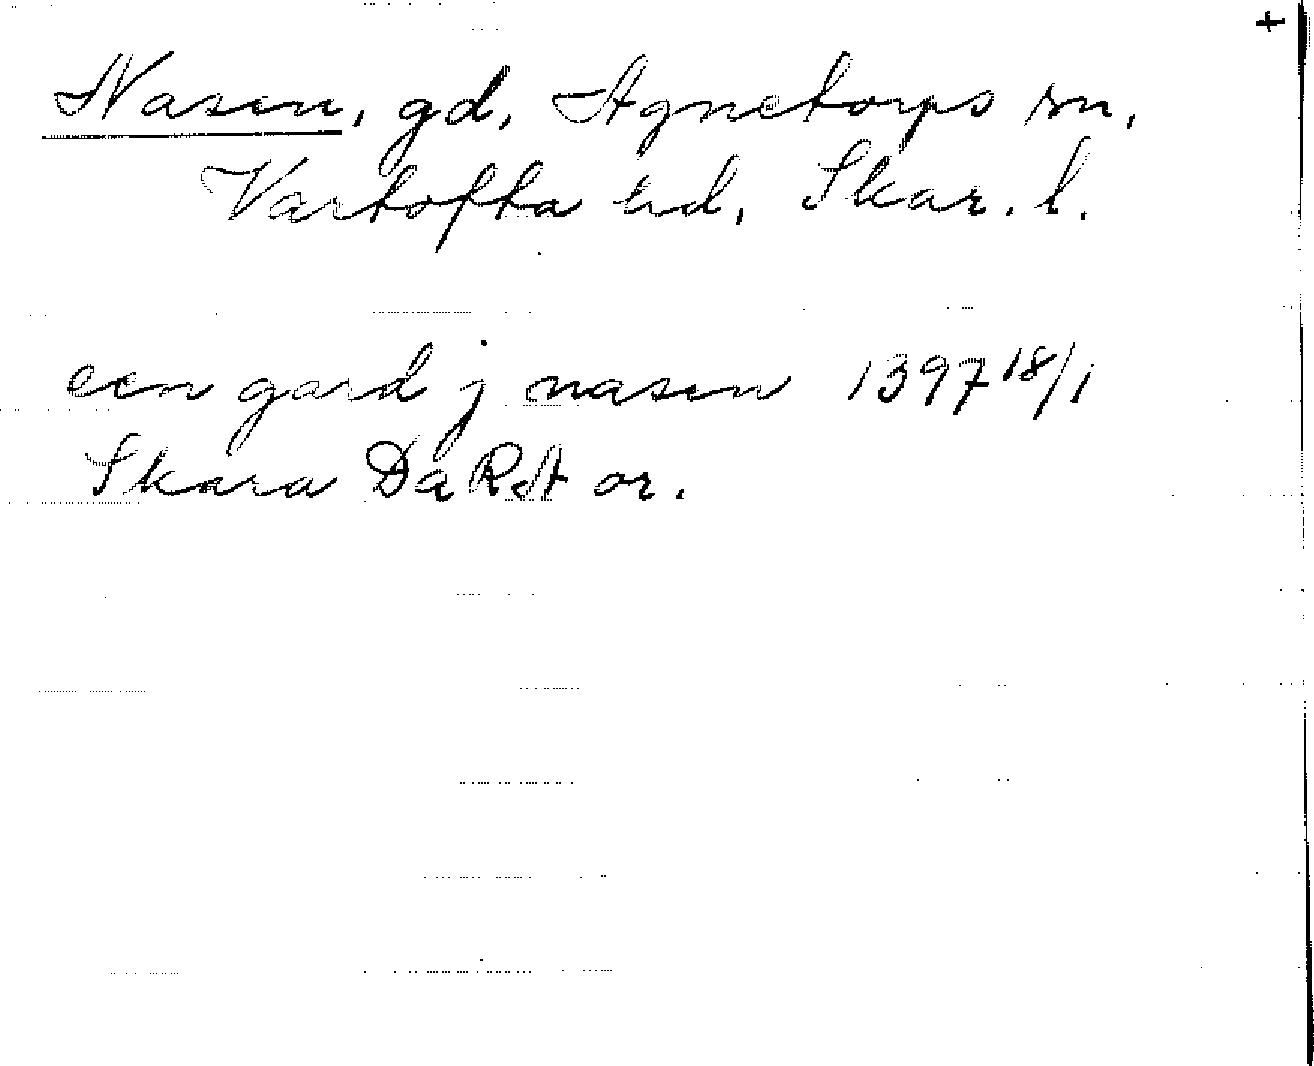 +
Nasen, gd, Agnetorps sn,
Vartofta hd, Skar. l.
een gard j nasen 1397 18/1
Skara Da RA or.